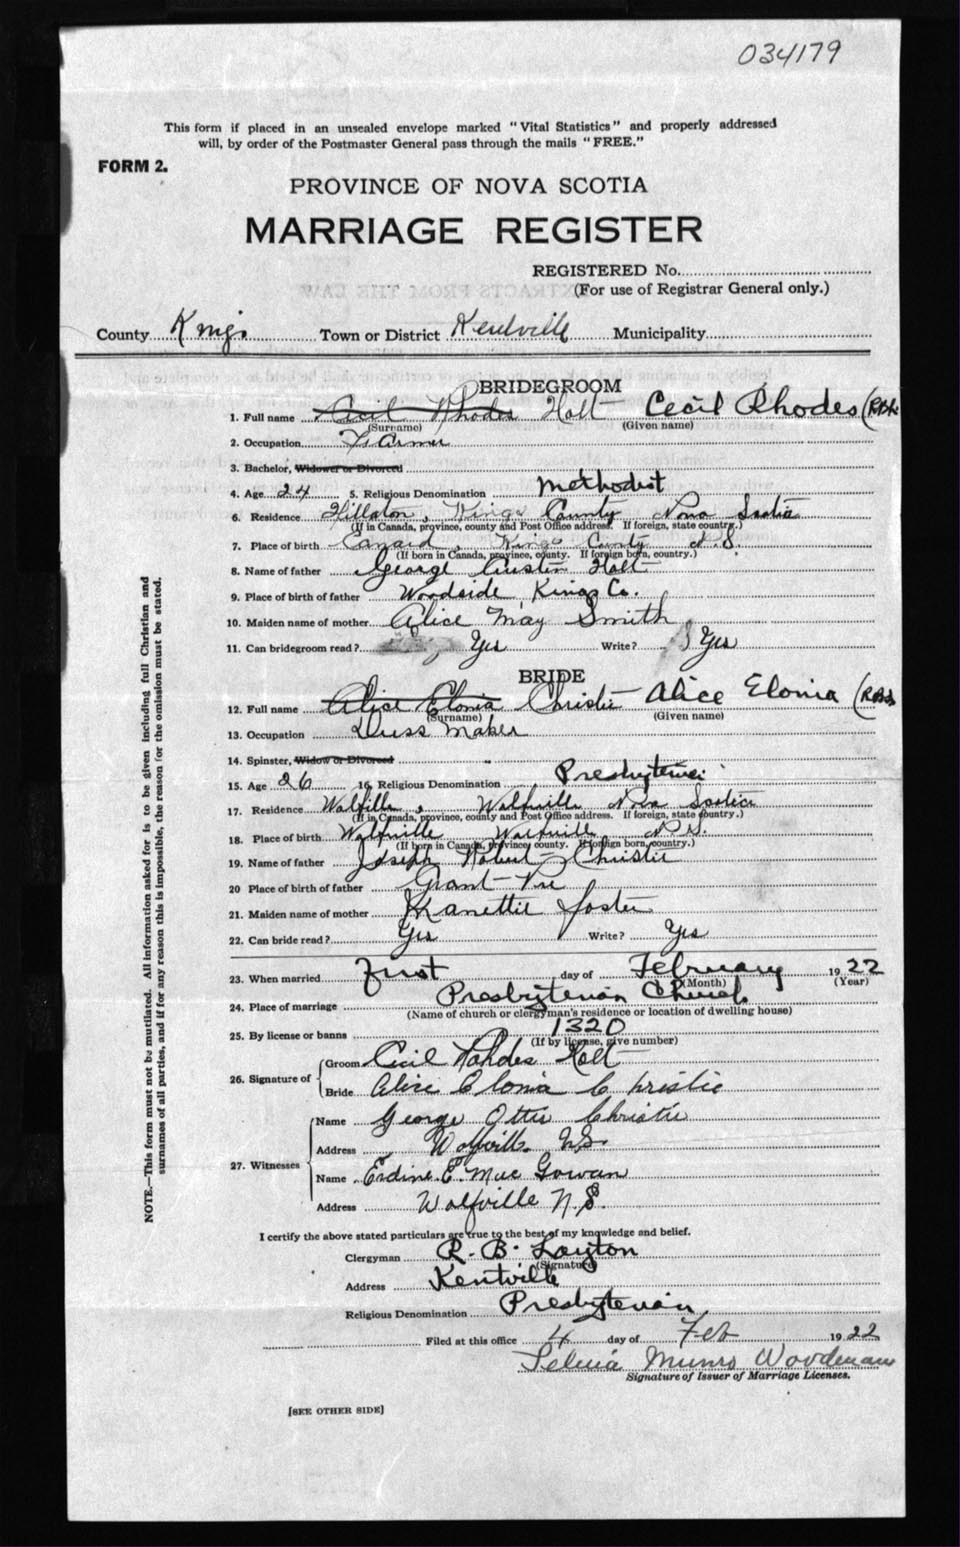 034179
This form if placed in an unsealed envelope marked "Vital Statistics" and properly addressed
will, by order of the Postmaster General pass through the mails "FREE."
FORM 2.
PROVINCE OF NOVA SCOTIA
MARRIAGE REGISTER
REGISTERED No.
(For use of Registrar General only.)
County Kings Town or District Kentville Municipality
BRIDEGROOM
1. Full name Cecil Rhodes Holt Cecil Rhodes
(Surname) (Given name)
2. Occupation Farmer
3. Bachelor, Widower or Divorced
4. Age 24 5. Religious Denomination Methodist
6. Residence Hillaton, Kings County Nova Scotia
(If in Canada, province, county and Post Office address. If foreign, state country.)
7. Place of birth Kings County N.S.
(If born in Canada, province, county. If foreign born, country.)
8. Name of father George Austin Holt
9. Place of birth of father Woodside, Kings Co.
10. Maiden name of mother Alice May Smith
11. Can bridegroom read? Yes Write? Yes
BRIDE
12. Full name Alice Elonia Christie Alice Elonia
(Surname) (Given name)
13. Occupation Dress maker
14. Spinster, Widow or Divorced
15. Age 26 16. Religious Denomination Presbyterian
17. Residence Wolfille, Wolfville Nova Scotia
(If in Canada, province, county and Post Office address. If foreign, state country.)
18. Place of birth Wolfville Wolfville N.S.
(If born in Canada, province, county. If foreign born, country.)
19. Name of father Joseph Robert Christie
20 Place of birth of father Grant Pre
21. Maiden name of mother Foster
22. Can bride read? Yes Write? Yes
23. When married First day of February 1922
(Month) (Year)
24. Place of marriage Presbyterian Church
(Name of church or clergyman's residence or location of dwelling house)
25. By license or banns 1320
(If by license, give number)
26. Signature of
Groom Cecil Rohdes Holt
Bride Alice Elonia Christie
27. Witnesses
Name George Otto Christie
Address Wolfville N.S.
Name Erdine E. MacGowan
Address Wolfville N.S.
I certify the above stated particulars are true to the best of my knowledge and belief.
Clergyman R. B. Layton
(Signature)
Address Kentville
Religious Denomination Presbyterian
Filed at this office 4 day of Feb 1922
Munro Woodman
Signature of Issuer of Marriage Licenses.
[SEE OTHER SIDE]
NOTE.—This form must not be mutilated. All information asked for is to be given including full Christian and
surnames of all parties, and if for any reason this is impossible, the reason for the omission must be stated.